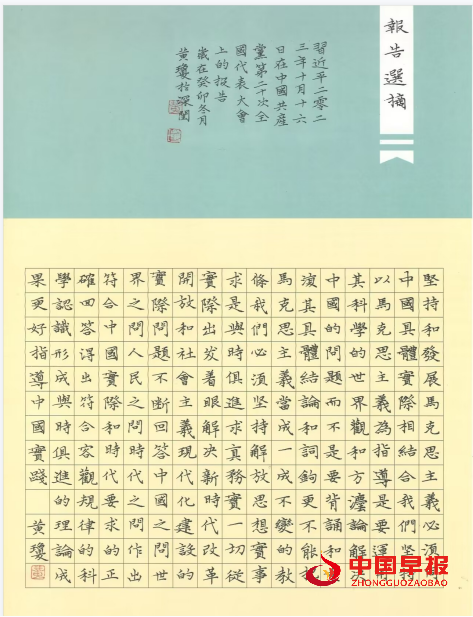 報告選摘
習近平二零二
三年十月十六
日在中國共産
黨第二十次全
國代表大會
上的报告
歲在癸卯冬月
黄瓊於深圳
堅持和發展馬克思主義必須
中國具體實際相結合我們堅持
以馬克思主義為指導是要運用
其科學的世界觀和方灋論解決
中國的問題而不是要背誦和
復其具體結論和詞鉤更不能把
馬克思主義當成一成不變的教
條我們必須堅持解放思想實事
求是與時俱進求真務實一切從
實際出发着眼解決新時代改革
開放和社會主義現代化建設的
實際問題不斷回答中國之問世
界之問人民之問時代之問作出
符合中國實際和時代要求的正
確回答得出符合客觀規律的科
學認識形成與時俱進的理論成
果更好指導中國實踐
黄瓊
中国早报
ZHONGGUOZAOBAO